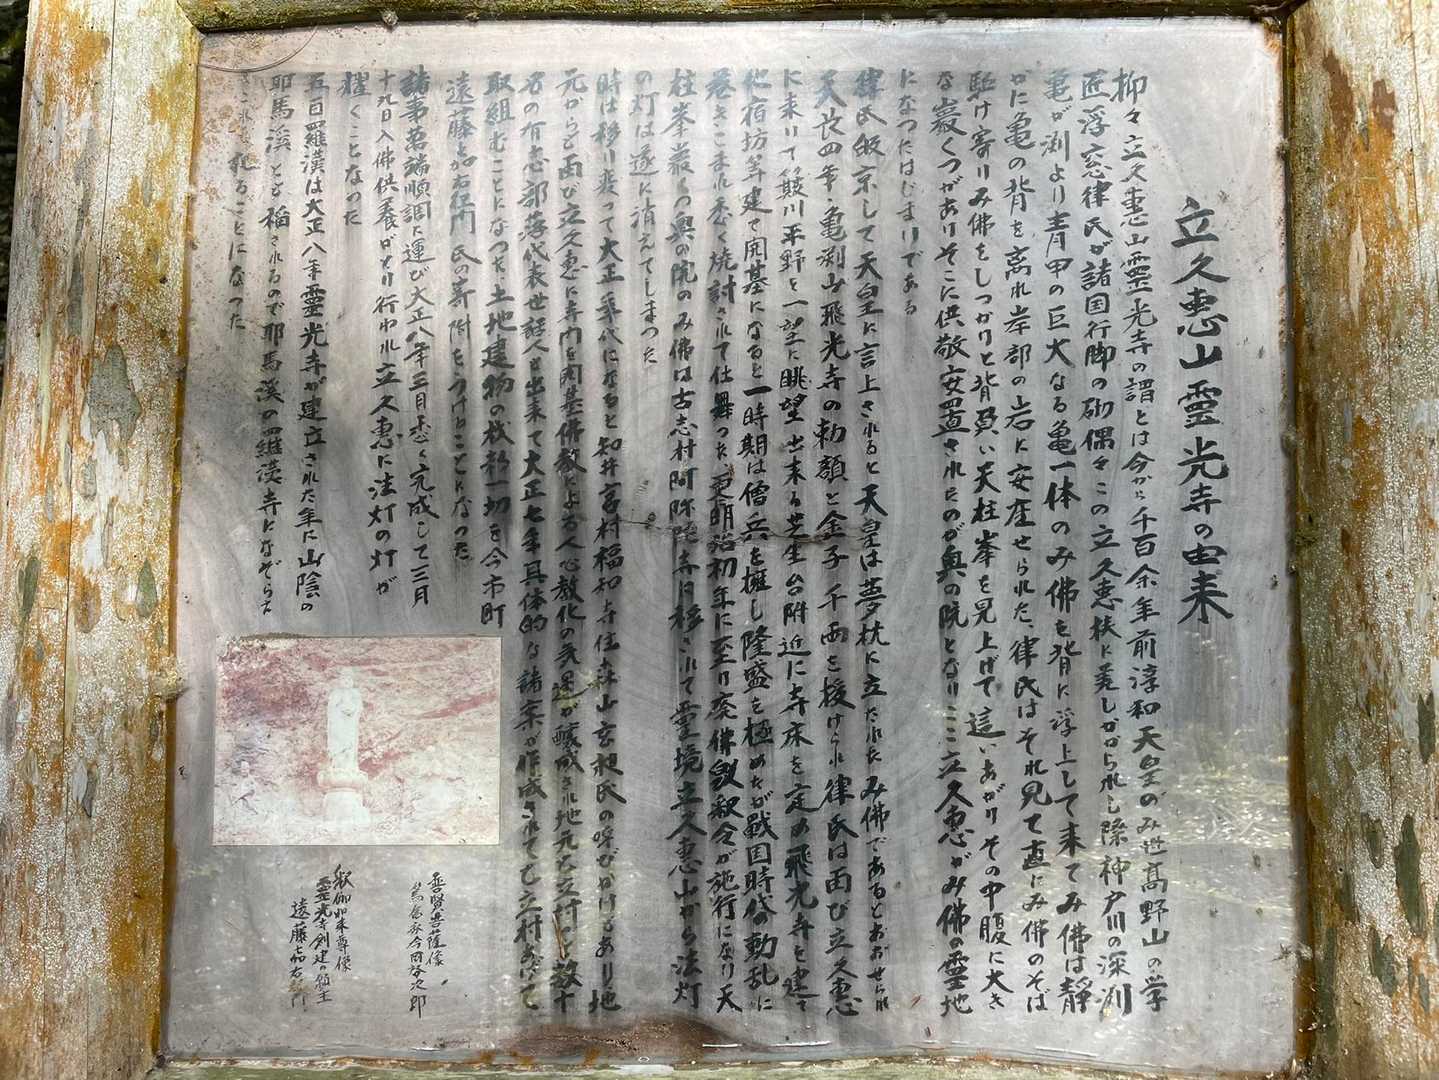 立久恵山霊光寺の由来
抑々立久恵山霊光寺の謂とは今から千百余年前淳和天皇のみ世高野山の学
匠浮窓律氏が諸国行脚の砌偶々この立久恵峡に差しかかられし際神戸川の深渕
亀が渕より青甲の巨大なる亀一体のみ佛を背に浮上して来てみ佛は静
かに亀の背を離れ岸部の岩に安座せられた、律氏はそれ見て直にみ佛のそば
駆け寄りみ佛をしつかりと背負い天柱峯を見上げて這いあがりその中腹に大き
な巖くつがありそこに供敬安置されたのが奥の院となりここ立久恵がみ佛の霊地
になつたはじまりである
律氏皈京して天皇に言上されると天皇は夢枕に立たれたみ佛であるとおおせられ
天長四年亀渕山飛光寺の勅額と金子千両を授けられ律氏は再び立久恵
に来りて簸川平野を一望に眺望出来る芝生台附近に寺床を定め飛光寺を建て
他宿坊等建て開基になると一時期は僧兵を擁し隆盛を極めたが戦国時代の動乱に
巻きこまれ悉く焼討されて仕舞った更明治初年に至り廃佛毀釈令が施行になり天
柱峯巌くの奥の院のみ佛は古志村阿弥陀寺に移されて霊境立久恵山から法灯
の灯は遂に消えてしまつた
時は移り変って大正年代になると知井宮村福知寺住森山玄昶氏の呼びかけもあり地
元からも再び立久恵に寺門を開基佛教による人心教化の気運が醸成され地元も立村の数十
名の有志部落代表世話人も出来て大正七年具体的な諸案が作成されてむ立村あげて
取組むことになつた土地建物の枝新一切を今市町
遠藤嘉右衛門氏の寄附をうけることになった
諸事萬端順調に運び大正八年三月悉く完成して三月
十九日入佛供養がとり行われ立久恵に法灯の灯が
燿くことなった
五百羅漢は大正八年霊光寺が建立された年に山陰の
耶馬渓とも稲されるので耶馬渓の羅漢寺になぞらえ
これを祀ることになった
普賢菩薩像
今岡啓次郎
釈伽如来尊像
霊光寺創建の願主
遠藤嘉右衛門